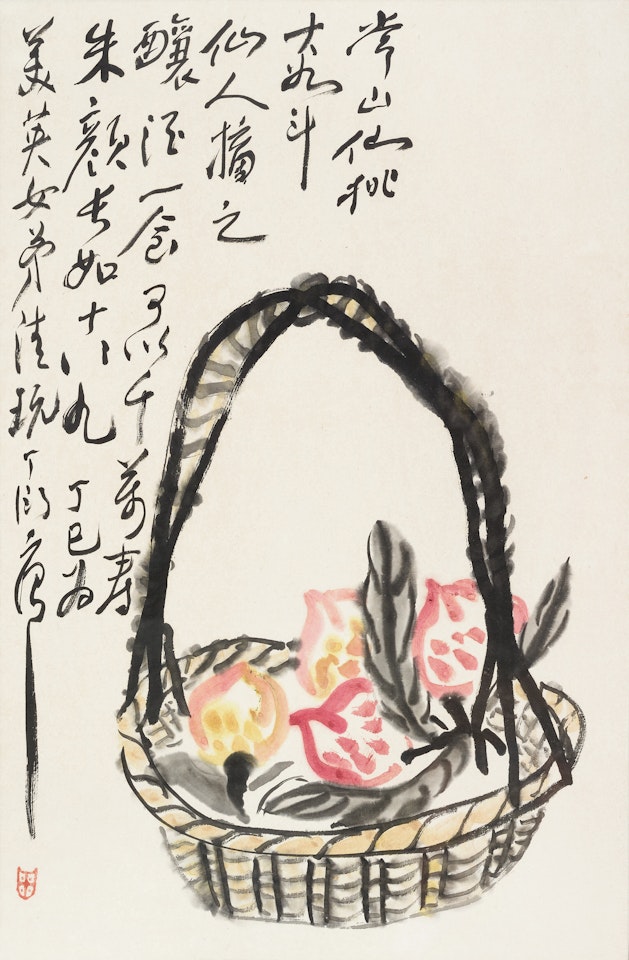 常山仙桃
大如斗
仙人摘之
釀酒一食可以千萬壽
朱顏長如十八九丁巳為
美英女弟清玩丁衍庸